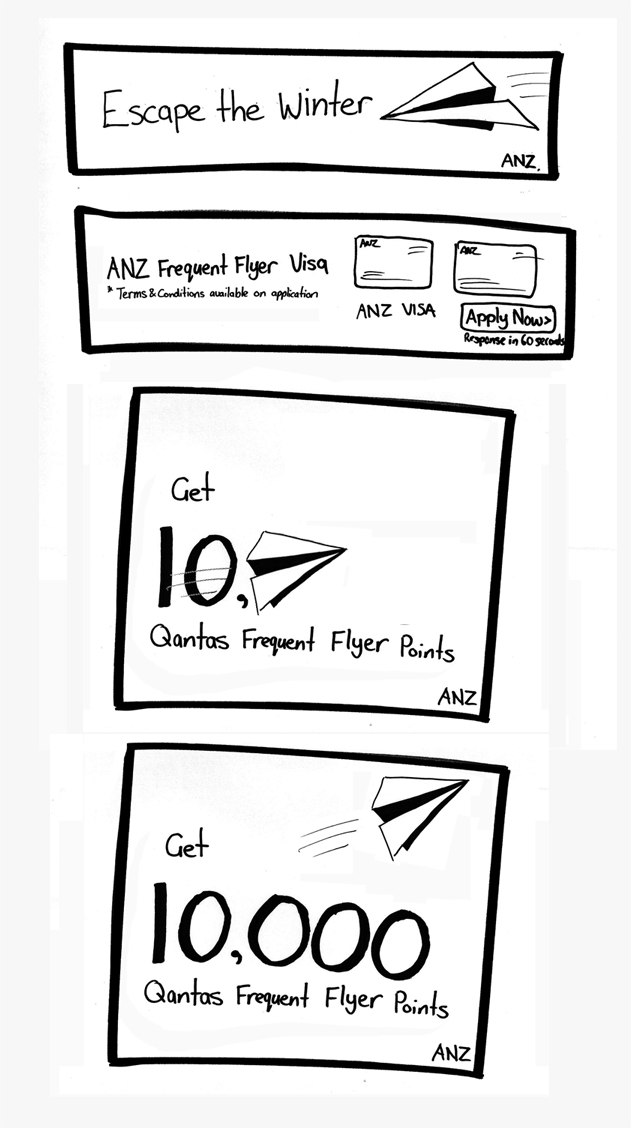 Escape the Winter
ANZ.
ANZ Frequent Flyer Visa
* Terms & Conditions available on application
ANZ
ANZ
ANZ VISA
Apply Now>
Response in 60 seconds
Get
10,
Qantas Frequent Flyer Points
ANZ
Get
10,000
Qantas Frequent Flyer Points
ANZ